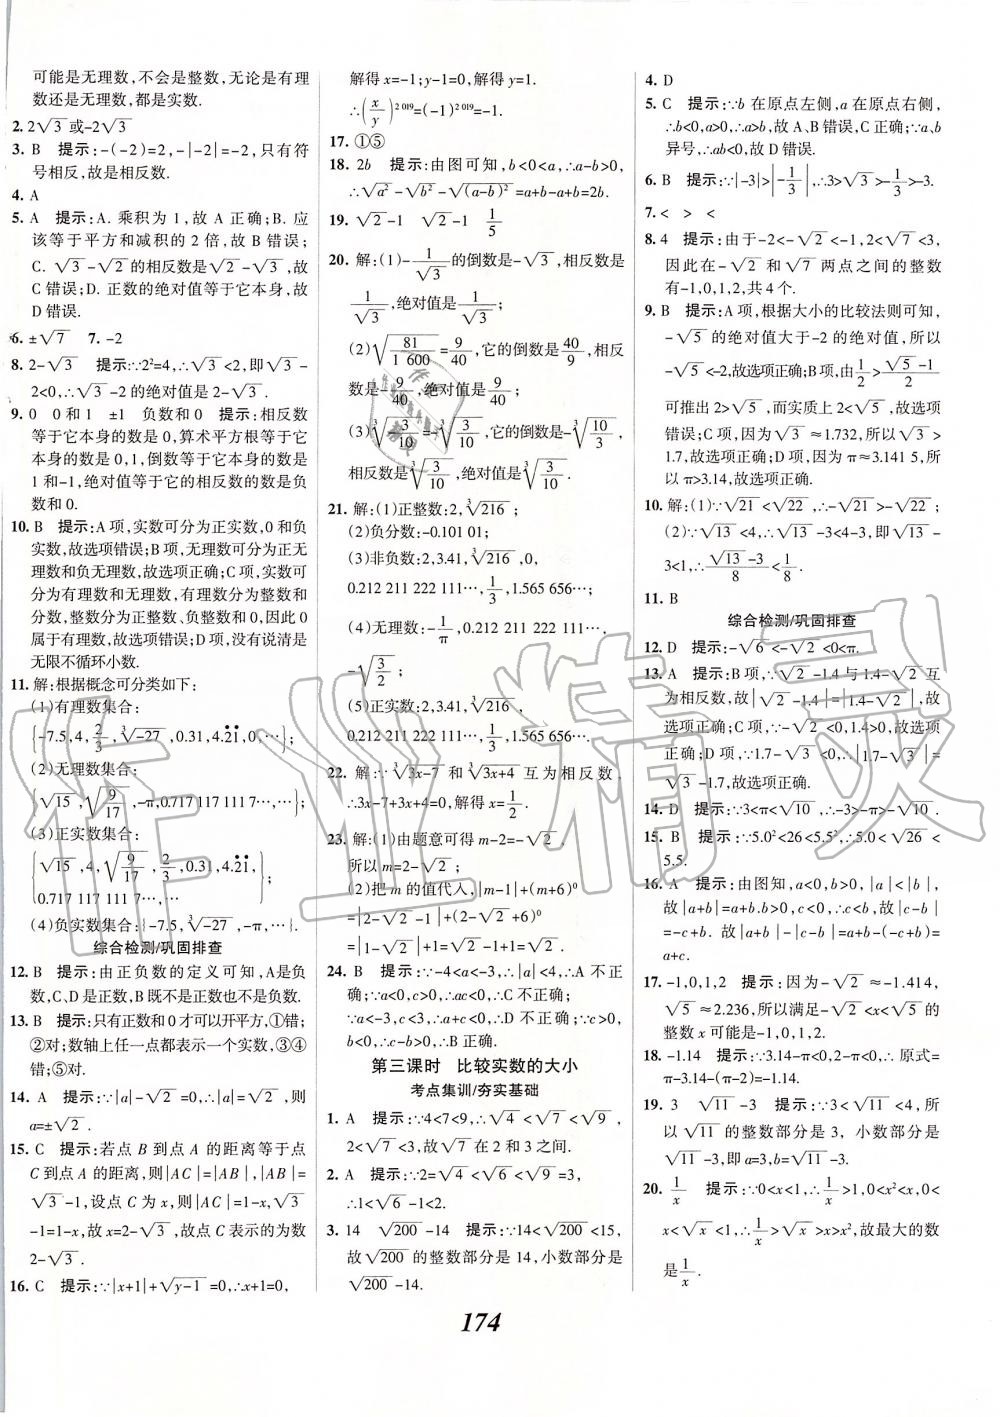 可能是无理数,不会是整数,无论是有理
数还是无理数,都是实数.
2. 2√3 或-2√3
3. B 提示:-(-2)=2,-|-2|=-2,只有符
号相反,故是相反数.
4. A
5. A 提示:A. 乘积为 1,故 A 正确;B. 应
该等于平方和减积的 2 倍,故 B 错误;
C. √3-√2的相反数是√2-√3,故
C 错误;D. 正数的绝对值等于它本身,故
D 错误.
6. ±√7 7. -2
8. 2-√3 提示:∵2²=4,∴√3<2,即√3-
2<0,∴√3-2的绝对值是 2-√3.
9. 0 0和1 ±1 负数和0 提示:相反数
等于它本身的数是 0,算术平方根等于它
本身的数是 0,1,倒数等于它本身的数是
1和-1,绝对值等于它的相反数的数是负
数和 0.
10. B 提示:A 项,实数可分为正实数,0和负
实数,故选项错误;B 项,无理数可分为正无
理数和负无理数,故选项正确;C项,实数可
分为有理数和无理数,有理数分为整数和
分数,整数分为正整数、负整数和 0,因此 0
属于有理数,故选项错误;D项,没说清是
无限不循环小数.
11. 解:根据概念可分类如下:
(1)有理数集合:
{-7.5,4,2/3,∛-27,0.31,4.2̇1̇,0,…};
(2)无理数集合:
{√15,√(9/17),-π,0.717 117 111 7…,…};
(3)正实数集合:
{√15,4,√(9/17),2/3,0.31,4.2̇1̇,
0.717 117 111 7…,…};
(4)负实数集合:{-7.5,∛-27,-π,…}.
综合检测/巩固排查
12. B 提示:由正负数的定义可知,A是负
数,C、D是正数,B既不是正数也不是负数.
13. B 提示:只有正数和0才可以开平方,①错;
②对;数轴上任一点都表示一个实数,③④
错;⑤对.
14. A 提示:∵|a|-√2=0,∴|a|=√2,则
a=±√2.
15. C 提示:若点 B 到点 A 的距离等于点
C到点 A 的距离,则|AC|=|AB|,|AB|=
√3-1,设点 C 为 x,则|AC|=1-x,∴√3
-1=1-x,故 x=2-√3,故点 C 表示的为数
2-√3.
16. C 提示:∵|x+1|+√(y-1)=0,∴x+1=0,
解得 x=-1;y-1=0,解得 y=1.
∴(x/y)^2 019=(-1)^2 019=-1.
17. ①⑤
18. 2b 提示:由图可知,b<0<a,∴a-b>0,
∴√a²-√b²-√(a-b)²=a+b-a+b=2b.
19. √2-1 √2-1 1/5
20. 解:(1)-1/√3的倒数是-√3,相反数是
1/√3,绝对值是1/√3;
(2)√(81/1 600)=9/40,它的倒数是40/9,相反
数是-9/40,绝对值是9/40;
(3)∛(-3/10)=-∛(3/10),它的倒数是-∛(10/3),
相反数是∛(3/10),绝对值是∛(3/10).
21. 解:(1)正整数:2,∛216;
(2)负分数:-0.101 01;
(3)非负数:2,3.41,∛216,0,
0.212 211 222 111…,1/3,1.565 656…;
(4)无理数:-1/π,0.212 211 222 111…,
-√(3/2);
(5)正实数:2,3.41,∛216,
0.212 211 222 111…,1/3,1.565 656….
22. 解:∵∛(3x-7)和∛(3x+4)互为相反数,
∴3x-7+3x+4=0,解得 x=1/2.
23. 解:(1)由题意可得 m-2=-√2,
所以 m=2-√2;
(2)把 m 的值代入,|m-1|+(m+6)⁰
=|2-√2-1|+(2-√2+6)⁰
=|1-√2|+1=√2-1+1=√2.
24. B 提示:∵-4<a<-3,∴|a|<4,A 不正
确;∵a<0,c>0,∴ac<0,C不正确;
∵a<-3,c<3,∴a+c<0,∴D 不正确;∵c>0,
b<0,∴c-b>0,∴B正确.
第三课时 比较实数的大小
考点集训/夯实基础
1. A 提示:∵4<7<9,∴√4<√7<√9,
2<√7<3,故√7在 2 和 3 之间.
2. A 提示:∵2=√4<√6<√9=3,
∴1<√6-1<2.
3. 14 √200-14 提示:∵14<√200<15,
故√200的整数部分是 14,小数部分是
√200-14.
4. D
5. C 提示:∵b 在原点左侧,a 在原点右侧,
∴b<0,a>0,∴a>b,故 A、B 错误,C 正确;∵a、b
异号,∴ab<0,故 D 错误.
6. B 提示:∵|-3|>|-1/3|,∴3>√3>-1/3>-3.
7. < > <
8. 4 提示:由于-2<-√2<-1,2<√7<3,
因此在-√2和√7两点之间的整数
有-1,0,1,2,共 4 个.
9. B 提示:A项,根据大小的比较法则可知,
-√5的绝对值大于-2的绝对值,所以
-√5<-2,故选项正确;B项,由1/2>(√5-1)/2
可推出 2>√5,而实质上 2<√5,故选项
错误;C项,因为√3≈1.732,所以√3>
1.7,故选项正确;D项,因为 π≈3.141 5,所
以 π>3.14,故选项正确.
10. 解:(1)∵√21<√22,∴-√21>-√22;
(2)∵√13<4,∴√13-3<4-3,即√13-
3<1,∴(√13-3)/8<1/8.
11. B
综合检测/巩固排查
12. D 提示:-√6<-√2<0<π.
13. A 提示:A 项,∵√2-1.4与1.4-√2互
为相反数,故|√2-1.4|=|1.4-√2|,故
选项正确;C 项,∵-√2<0,1.4>0,故选项
正确;D项,∵1.7-√3<0,∴|1.7-√3|=
√3-1.7,故选项正确.
14. D 提示:∵3<π<√10,∴-3>-π>-√10.
15. B 提示:∵5.0²<26<5.5²,∴5.0<√26<
5.5.
16. A 提示:由图知,a<0,b>0,|a|<|b|,
故|a+b|=a+b.b>0,c<0,故|c-b|
=-c+b. 故|a+b|-|c-b|=a+b-(-c+b)=
a+c.
17. -1,0,1,2 提示:因为-√2≈-1.414,
√5≈2.236,所以满足-√2<x<√5的
整数 x 可能是-1,0,1,2.
18. -1.14 提示:∵3.14-π<0,2-π<0,∴原式=
π-3.14-(π-2)=-1.14.
19. 3 √11-3 提示:∵3<√11<4,所
以√11的整数部分是 3,小数部分是
√11-3,即 a=3,b=√11-3.
20. 1/x 提示:∵0<x<1,∴1/x>1,0<x²<x,0<
x<√x<1,∴1/x>√x>x>x²,故最大的数
是1/x.
174
作业精灵